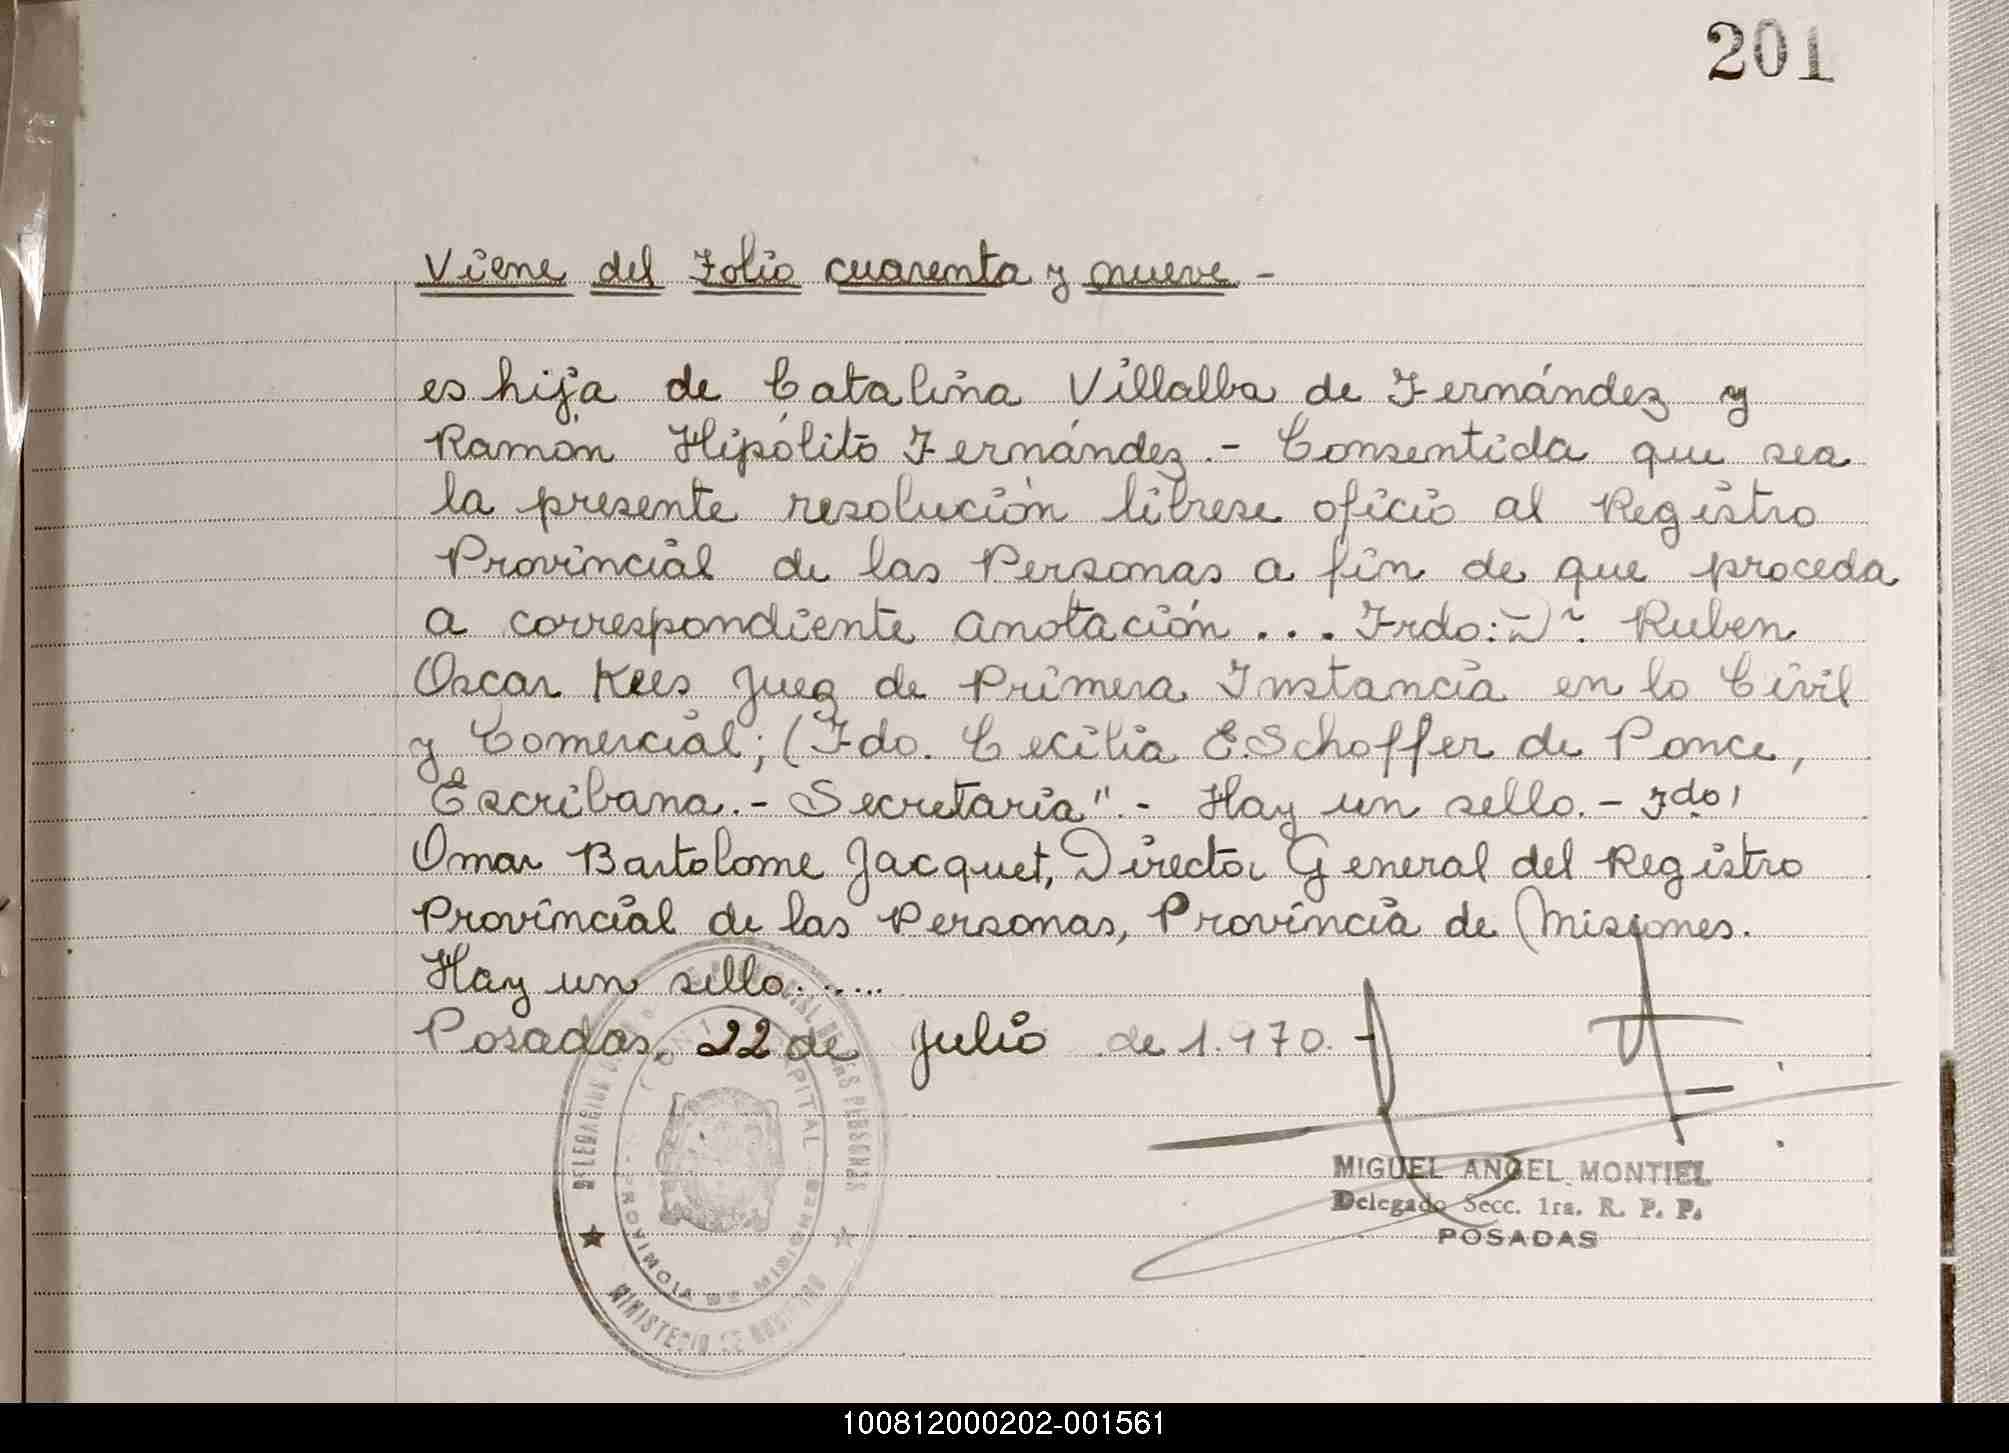 201
Viene del Folio cuarenta y nueve -
es hija de Catalina Villalba de Fernández y
Ramón Hipólito Fernández.- Consentida que sea
la presente resolución líbrese oficio al Registro
Provincial de las Personas a fin de que proceda
a correspondiente anotación ... Frdo: Dr. Ruben
Oscar Kees Juez de Primera Instancia en lo Civil
y Comercial; (Fdo. Cecilia E. Schoffer de Ponce,
Escribana.- Secretaria".- Hay un sello.- Fdo,
Omar Bartolome Jacquet, Director General del Registro
Provincial de las Personas, Provincia de Misiones.
Hay un sello......
Posadas, 22 de Julio de 1.970.-
MIGUEL ANGEL MONTIEL
Delegado Secc. 1ra. R. P. P.
POSADAS
DELEGACION DE LAS PERSONAS
CAPITAL
PROVINCIA DE MISIONES
MINISTERIO DE GOBIERNO
100812000202-001561